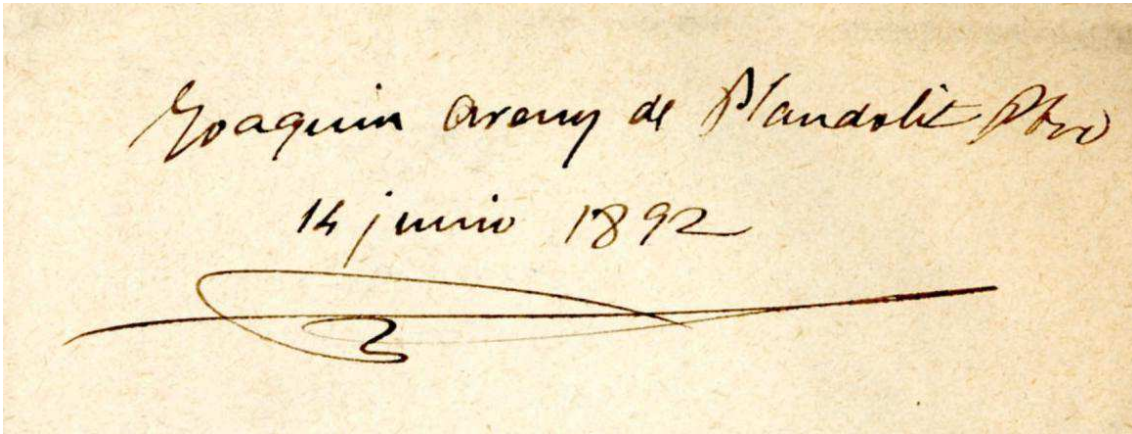 Joaquin Areny de Plandolit Pbro
14 junio 1892